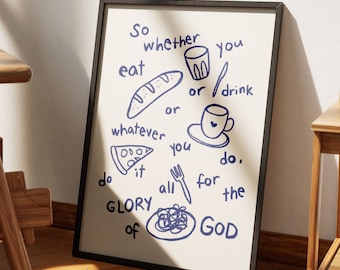 So whether you
eat or drink
or
whatever you do.
do it all for the
GLORY of GOD